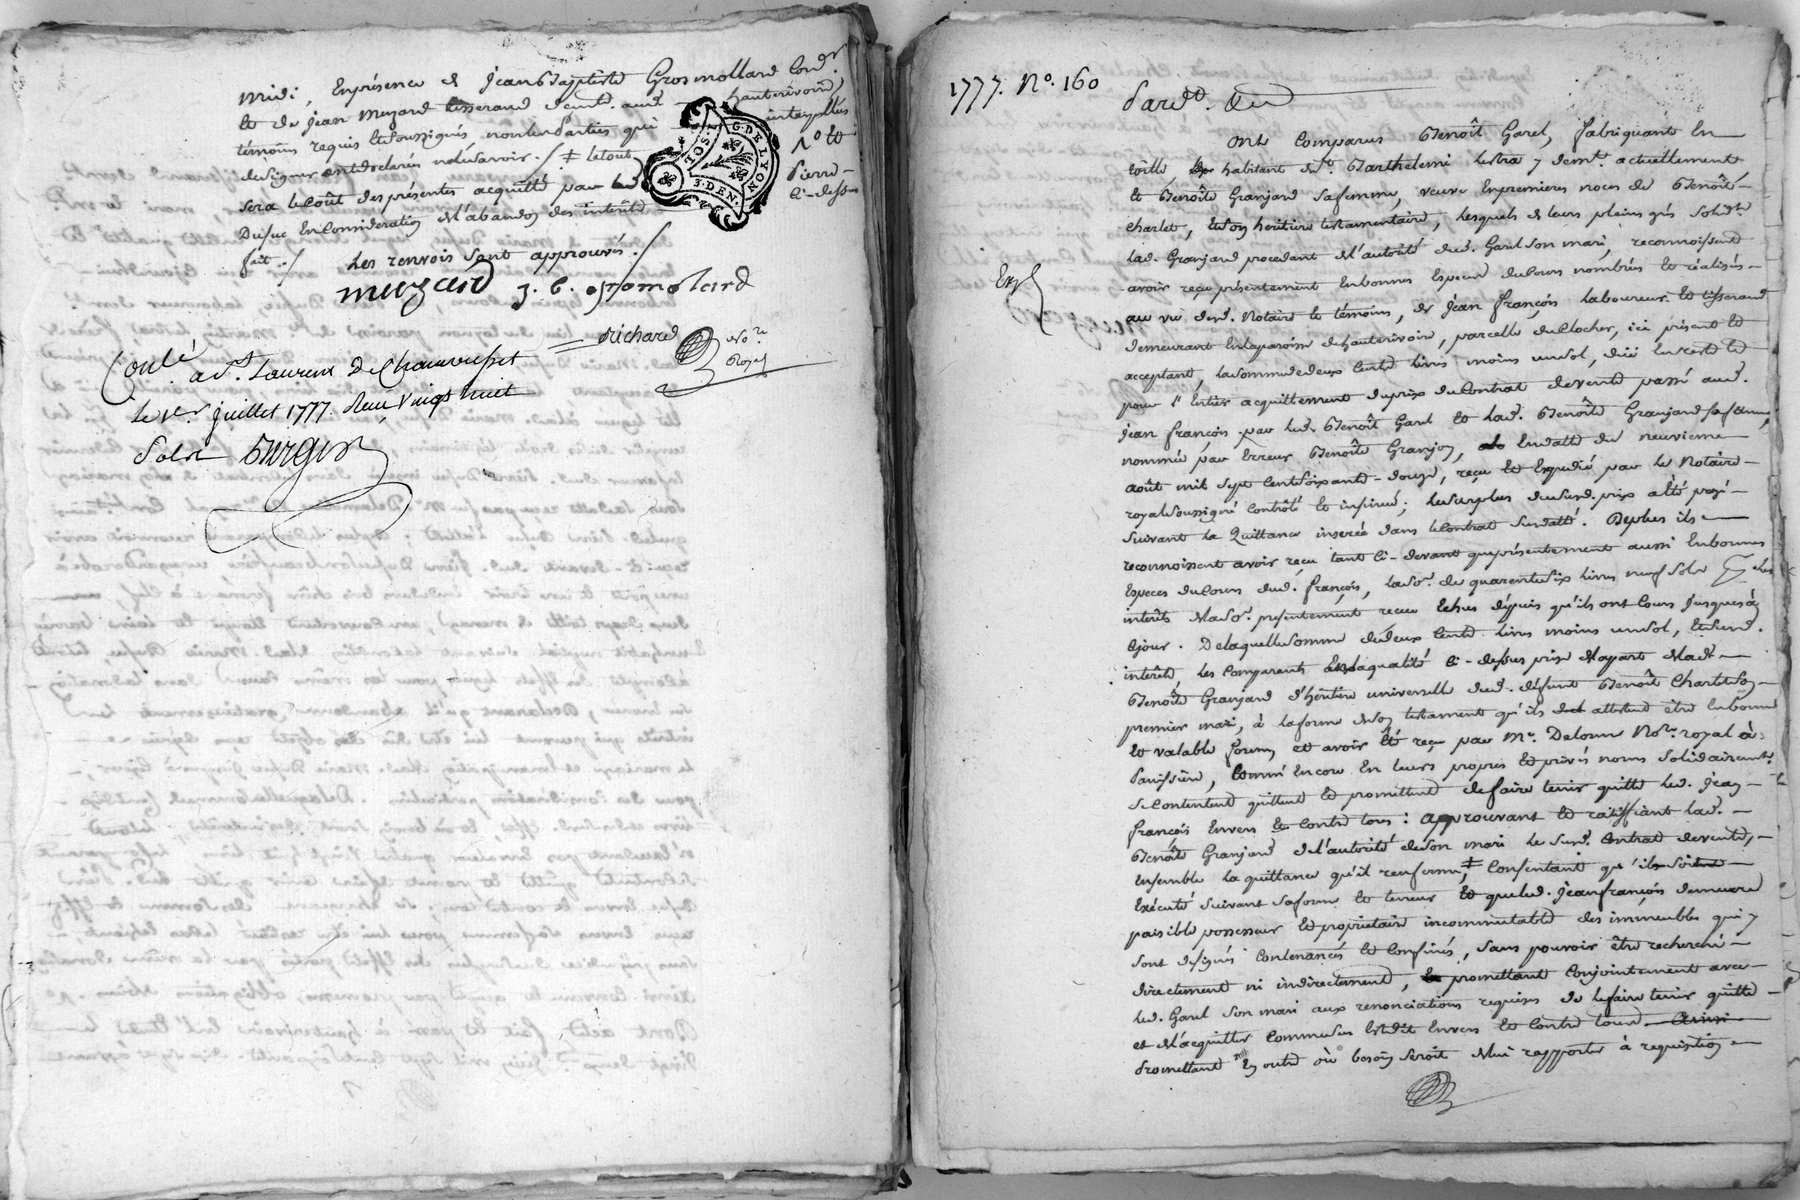 midi, Enprésence de Jean Baptiste Grosmollard Cord.r
et de Jean Muzard tisserand demt. aud. hauterivoire
témoins requis et soussignés non les Parties qui interpellées
de signer ont declarés ne le scavoir ./ ‡ le tout
sera le Coût des présentes acquitté par Pierre
Dufuc En Consideration de l'abandon des interêts ci-dessus
fait ./ Les renvois sont approuvés ./
G. DE LYON
3. DEN.
muzard J. B. gromolard
Richard No.re Royal
Con.lé a St. Laurent De Chamousset
le 1er juillet 1777. Reçu vingt huit
Sols
1777. No. 160
Pard.t. Que
Ont Comparus Benoît Garel, fabriquant En
toille, habitant de St. Barthelemi Lestra y demt. actuellement
et Benoîte Granjard sa femme, veuve Enpremieres noces de Benoît
Charlet, et son héritiere testamentaire, lesquels de leurs pleins grés solidt.
lad. Granjard procedant de l'autorité dud. Garel son mari, reconnoissent
avoir reçu présentement En bonnes Especes du Cours nombrées et réalisées
au vu desd. Notaire et témoins, de Jean françois Laboureur et tisserand
demeurant En la paroisse de hauterivoire, parcelle du Clocher, ici présent et
acceptant, la somme de deux Cents livres moins un sol, düe En reste et
pour l'Entier acquittement du prix du Contrat de vente passé aud.
Jean françois par led. Benoît Garel et lad. Benoîte Granjard sa femme,
nommée par Erreur Benoîte Granjon, En datte du neuvieme
août mil sept Cent soixante-douze, reçu et Expedié par le Notaire
royal soussigné contrôlé et insinué; le surplus dususd. prix a été payé
suivant la Quittance inserée dans le Contrat susdatté. De plus ils
reconnoissent avoir reçu tant ci-devant que présentement aussi En bonnes
Especes du Cours dud. françois, la so.e de quarante six livres neuf sols les
interêts de la So.e présentement reçue Echus depuis qu'ils ont Cours jusques à
Cejour. De laquelle somme de deux Cents livres moins un sol, et susd.
interêts, les Comparants En la qualité ci-dessus prise de la part de lad.
Benoîte Granjard d'héritiere universelle dud. défunt Benoît Charlet son
premier mari, à la forme de son testament qu'ils attestent être En bonne
et valable forme et avoir Eté reçu par Me. Delorme No.re royal à
Panissiere, Comme Encore En leurs propres et privés noms solidairemt.
se Contentent quittent et promettent de faire tenir quitte led. Jean
françois Envers et Contre tous: approuvant et ratiffiant lad.
Benoîte Granjard de l'autorité de son mari le susd. Contrat de vente,
Ensemble la quittance qu'il renferme, ‡ Consentant qu'ils soient
Exécuté suivant sa forme et teneur et que led. Jean françois demeure
paisible possesseur et proprietaire incommutable des immeubles qui y
sont désignés Contenancés et Confinés, sans pouvoir être recherché
directement ni indirectement, promettant Conjointement avec
led. Garel son mari aux renonciations requises de le faire tenir quitte
et de l'acquitter Comme sus Est dit Envers et Contre tous
Promettant En outre où besoin seroit de lui rapporter à requisition